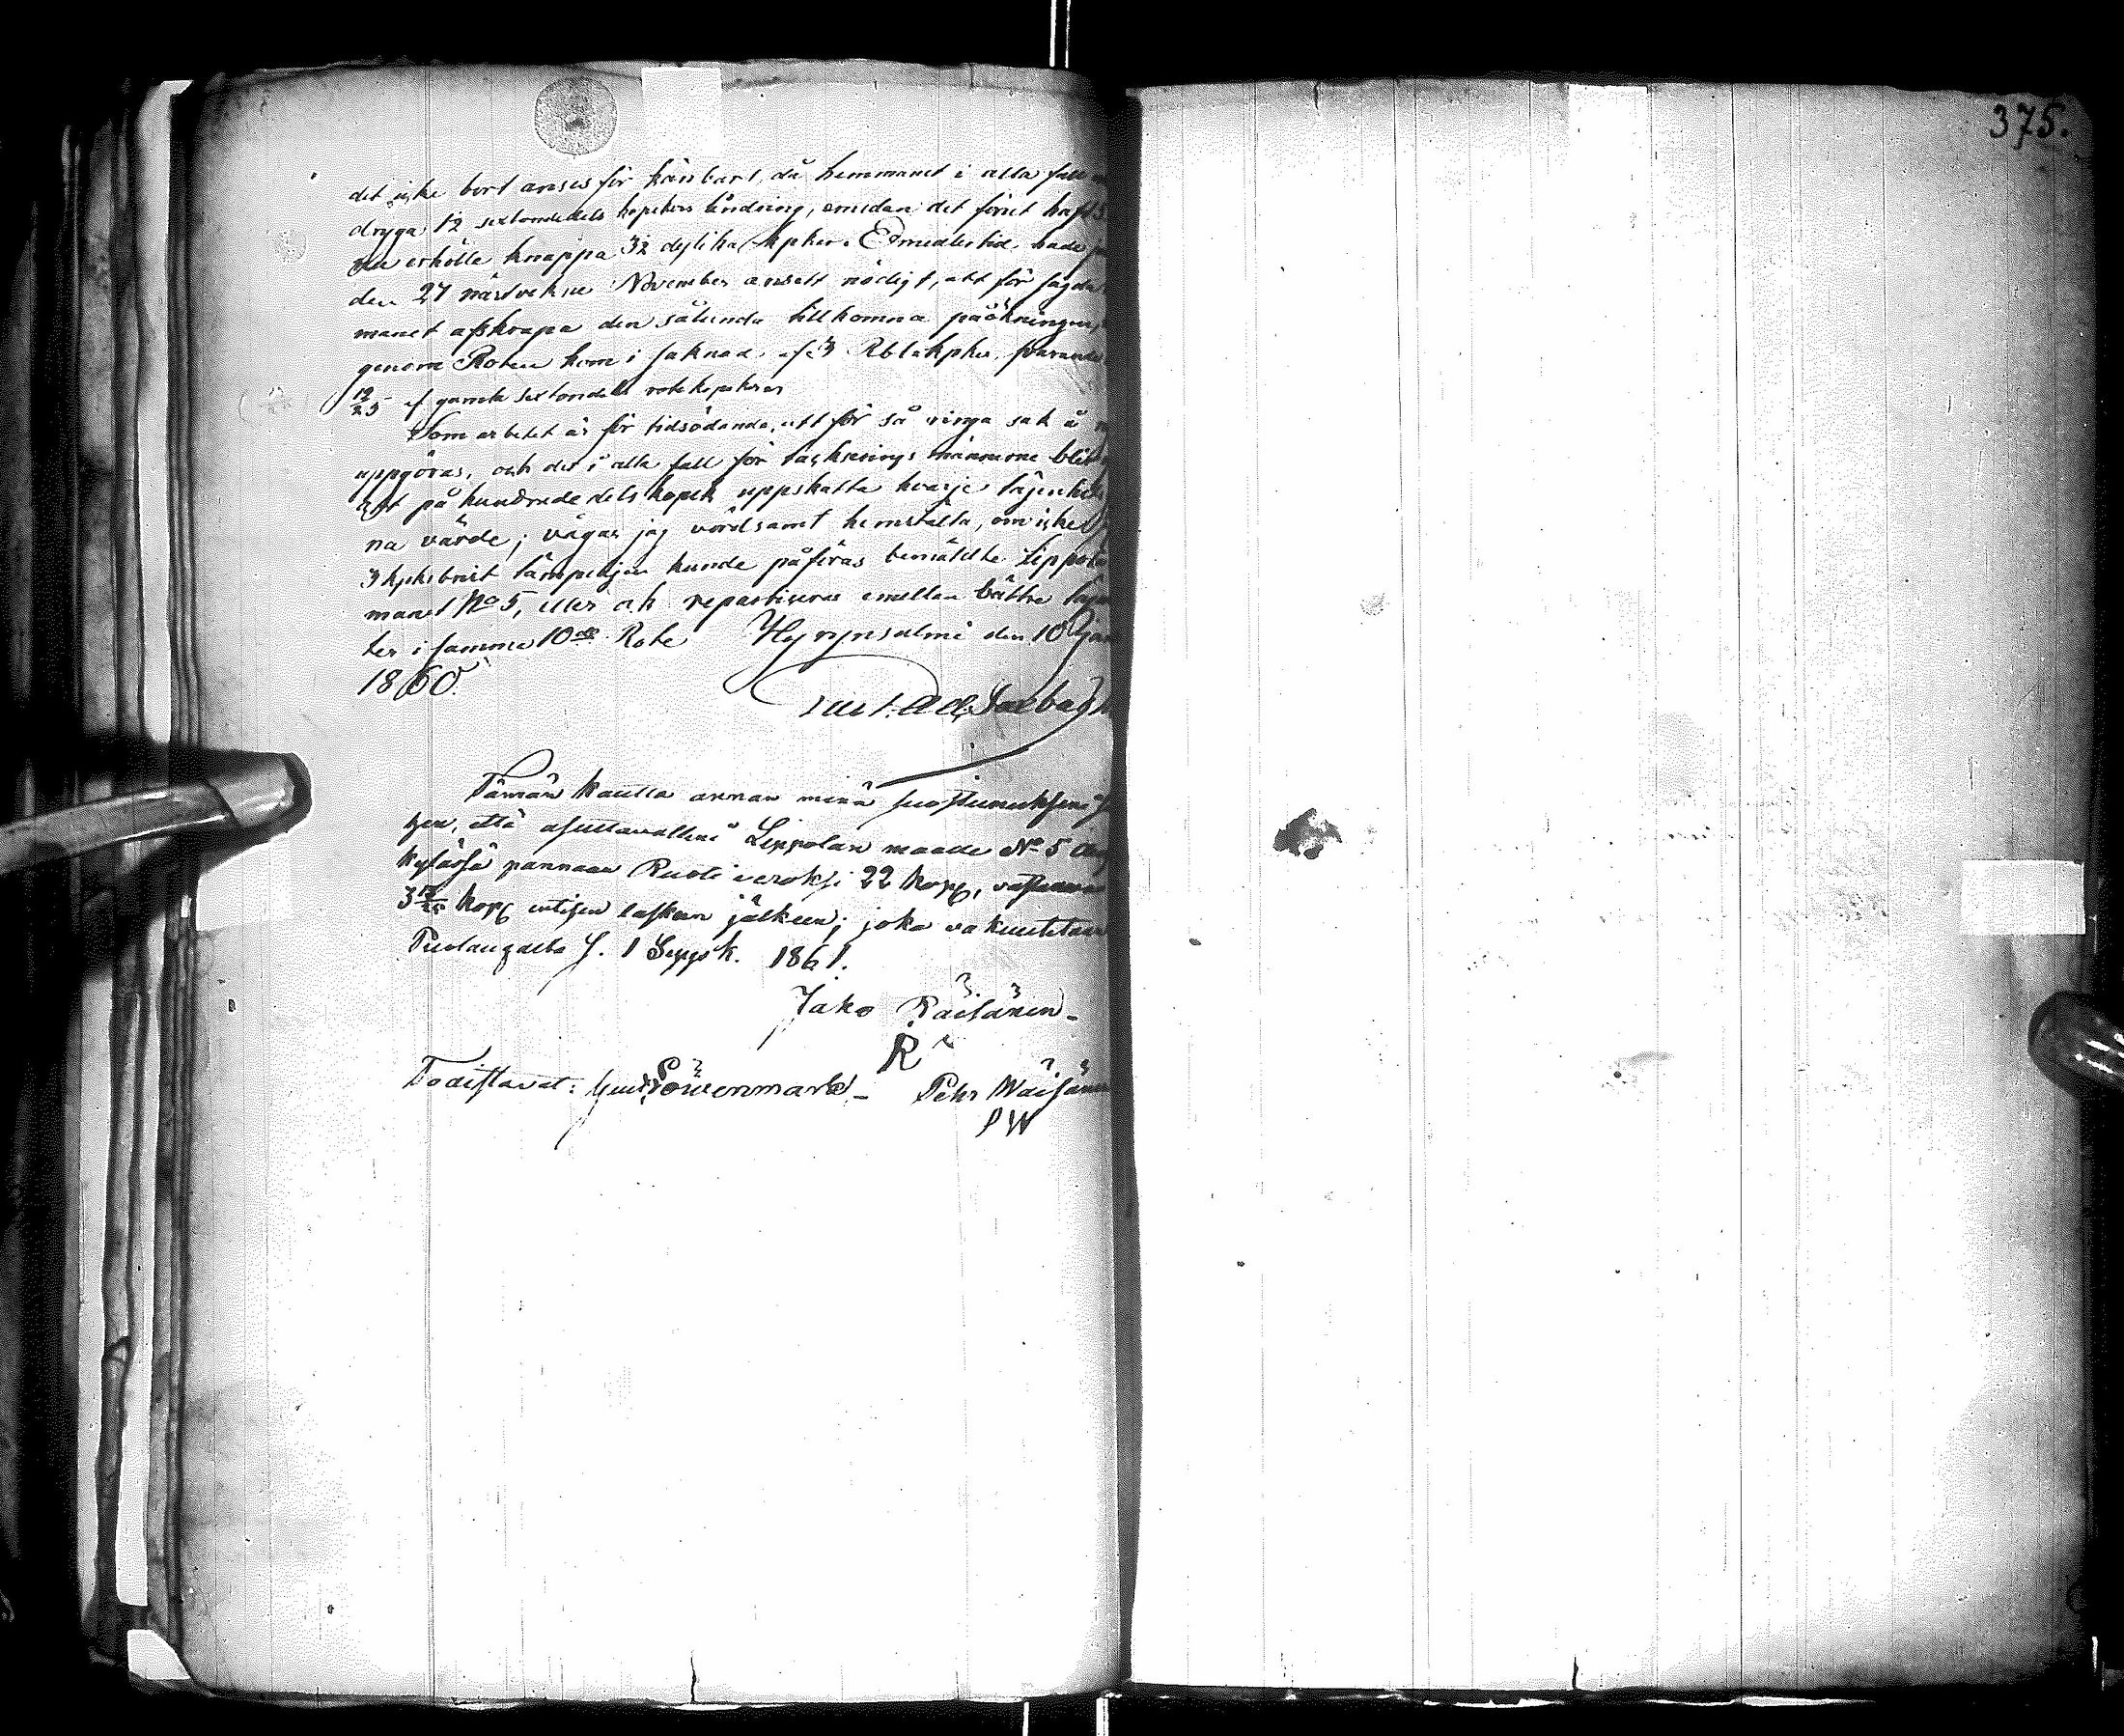 det icke bort anses för kännbart, då hemmanet i alla fall
dryga 1½ sextondedels kopekers lindring, emedan det förut haft 5
nu erhölle knappa 3½ dylika kpker. Emedlertid hade
den 27 nästvekne November ansett nödigt, att för sagda
manet afskrapa den sålunda tillkomna påökningen,
genom Roten kom i saknad af 3 Rblskpker, svarande
12/25 af gamla sextondels rotekopeker
Som arbetet är för tidsödande, att för så ringa sak å
uppgöras, och det i alla fall för taxerings männerne blir
att på hundrade dels kopek uppskatta hvarje lägenhets
na värde; vågar jag vördsamt hemställa, om icke
3 kpks brist lämpeligen kunde påföras bemäldte Lippola
manet No 5, eller och repartiseras emellan bättre lägen
ter i samma 10de Rote Hyrynsalmi den 10 Jan
1860.
Gust. Ad. Salbag
Tämän kautta annan minä suostumukseni
hen, että asuttavalleni Lippolan maade No 5
kylässä pannaan Ruoti veroksi 22 kopq, vastaava
3 12/25 kopq entisen laskun jälkeen; joka vakuutetaan
Puolangalla S. 1 Syysk. 1861.
Jako Räisänen
R
Todistavat: Gust. Löwenmark Pehr Wäisänen
P W
375.